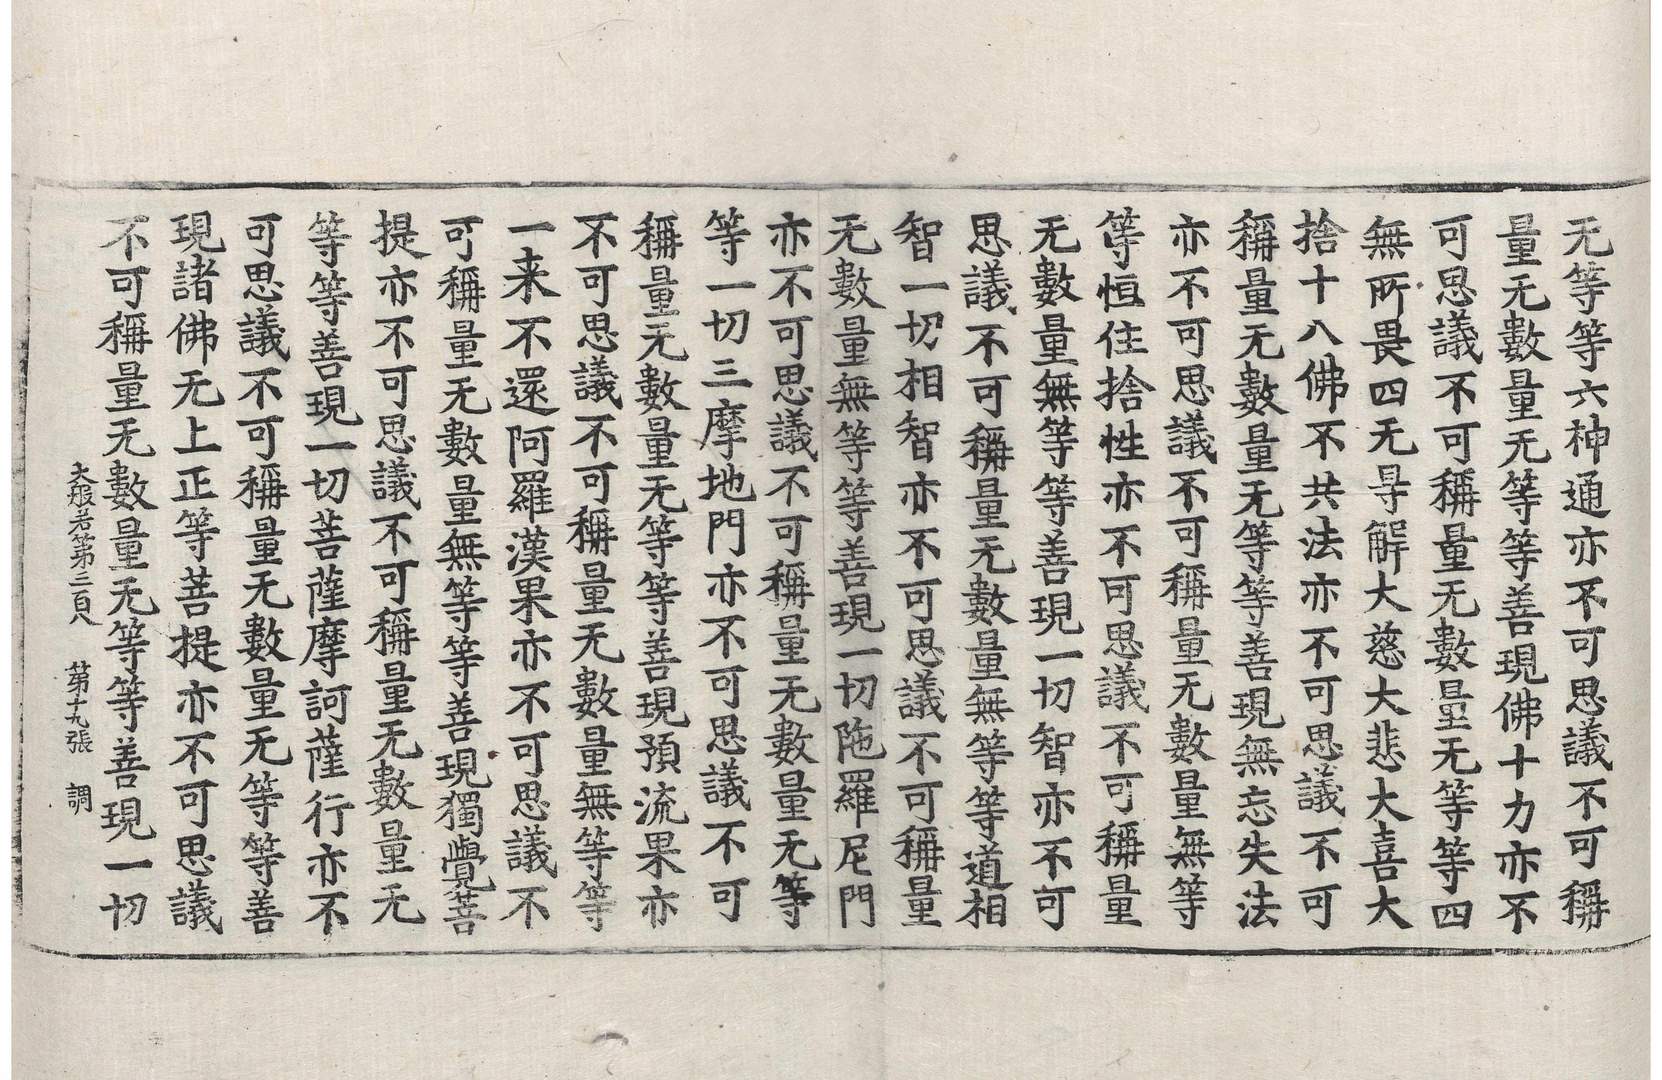 无等等六神通亦不可思議不可稱
量无數量无等等善現佛十力亦不
可思議不可稱量无數量无等等四
無所畏四无㝵解大慈大悲大喜大
捨十八佛不共法亦不可思議不可
稱量无數量无等等善現無忘失法
亦不可思議不可稱量无數量無等
等恒住捨性亦不可思議不可稱量
无數量無等等善現一切智亦不可
思議不可稱量无數量無等等道相
智一切相智亦不可思議不可稱量
无數量無等等善現一切陁羅尼門
亦不可思議不可稱量无數量无等
等一切三摩地門亦不可思議不可
稱量无數量无等等善現預流果亦
不可思議不可稱量无數量無等等
一来不還阿羅漢果亦不可思議不
可稱量无數量無等等善現獨覺菩
提亦不可思議不可稱量无數量无
等等善現一切菩薩摩訶薩行亦不
可思議不可稱量无數量无等等善
現諸佛无上正等菩提亦不可思議
不可稱量无數量无等等善現一切
大般若第三百八 第十九張 調